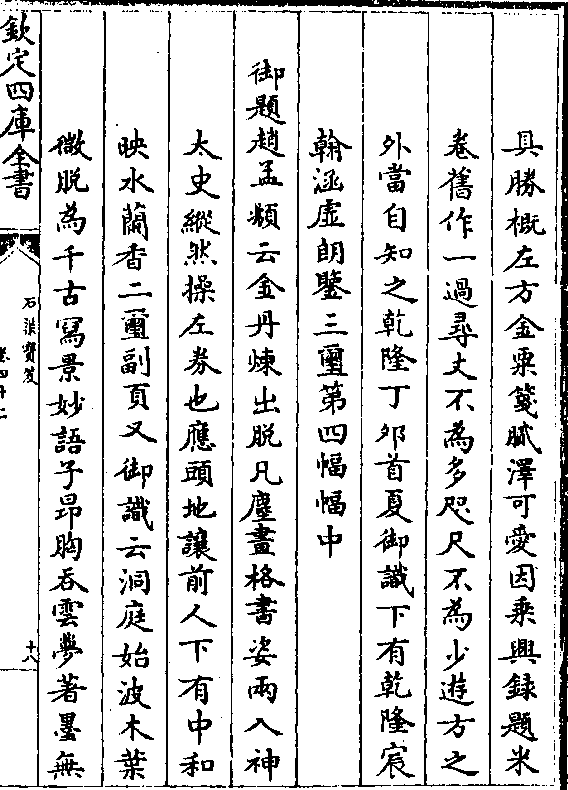 具勝概左方金粟箋膩澤可愛因乗興録題米
卷舊作一過尋丈不為多咫尺不為少遊方之
外當自知之乾隆丁夘首夏御識下有乾隆宸
翰涵虛朗鑒三璽第四幅幅中
御題趙孟頫云金丹煉出脱凡塵畫格書姿兩入神
大史縱然操左券也應頭地讓前人下有中和
映水蘭香二璽副頁又御識云洞庭始波木葉
微脱為千古寫景妙語子昻胸吞雲夢著墨無
欽定四庫全書
石渠寶笈
卷四十二
十八